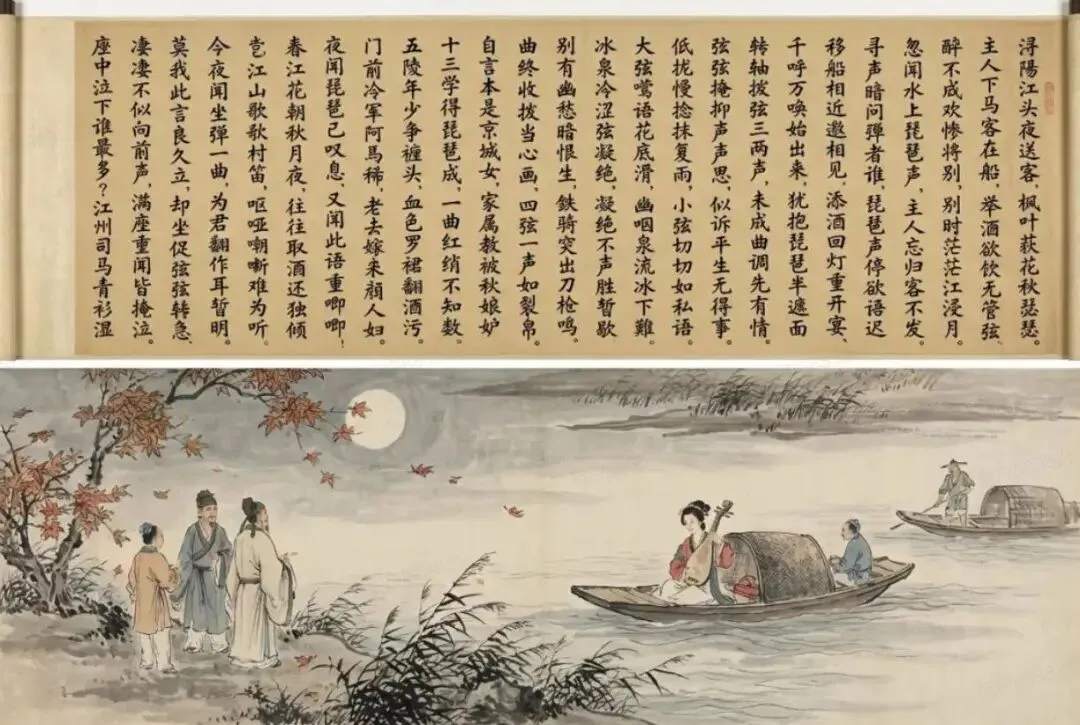 浔陽江头夜送客，枫叶荻花秋瑟瑟。
主人下马客在船，举酒欲饮无管弦。
醉不成欢惨将别，别时茫茫江浸月。
忽闻水上琵琶声，主人忘归客不发。
寻声暗问弹者谁，琵琶声停欲语迟
移船相近邀相见，添酒回灯重开宴、
千呼万唤始出来，犹抱琵琶半遮面
转轴拨弦三两声，未成曲调先有情。
弦弦掩抑声声思，似诉平生无得事。
低扰慢捻抹复雨，小弦切切如私语。
大弦鶯语花底滑，幽咽泉流冰下難。
冰泉冷涩弦凝绝，凝绝不声胜暂歇
别有幽愁暗恨生，鉄骑突出刀枪鸣。
曲终收拨当心画，四弦一声如裂帛。
自言本是京城女，家属教被秋娘妒
十三学得琵琶成，一曲红绡不知数。
五陵年少争褲头，血色罗裙翻酒污。
门前冷军阿馬稀，老去嫁来顔人妇。
夜闻琵琶已叹息，又闻此语重唧唧！
春江花朝秋月夜，往往取酒还独倾
岂江山歌歌村笛，呕哑嘲哳难为听。
今夜闻坐弹一曲，为君翻作耳暂明。
莫我此言良久立，却坐促弦弦转急、
凄凄不似向前声，满座重闻皆掩泣。
座中泣下谁最多？江州司马青衫湿